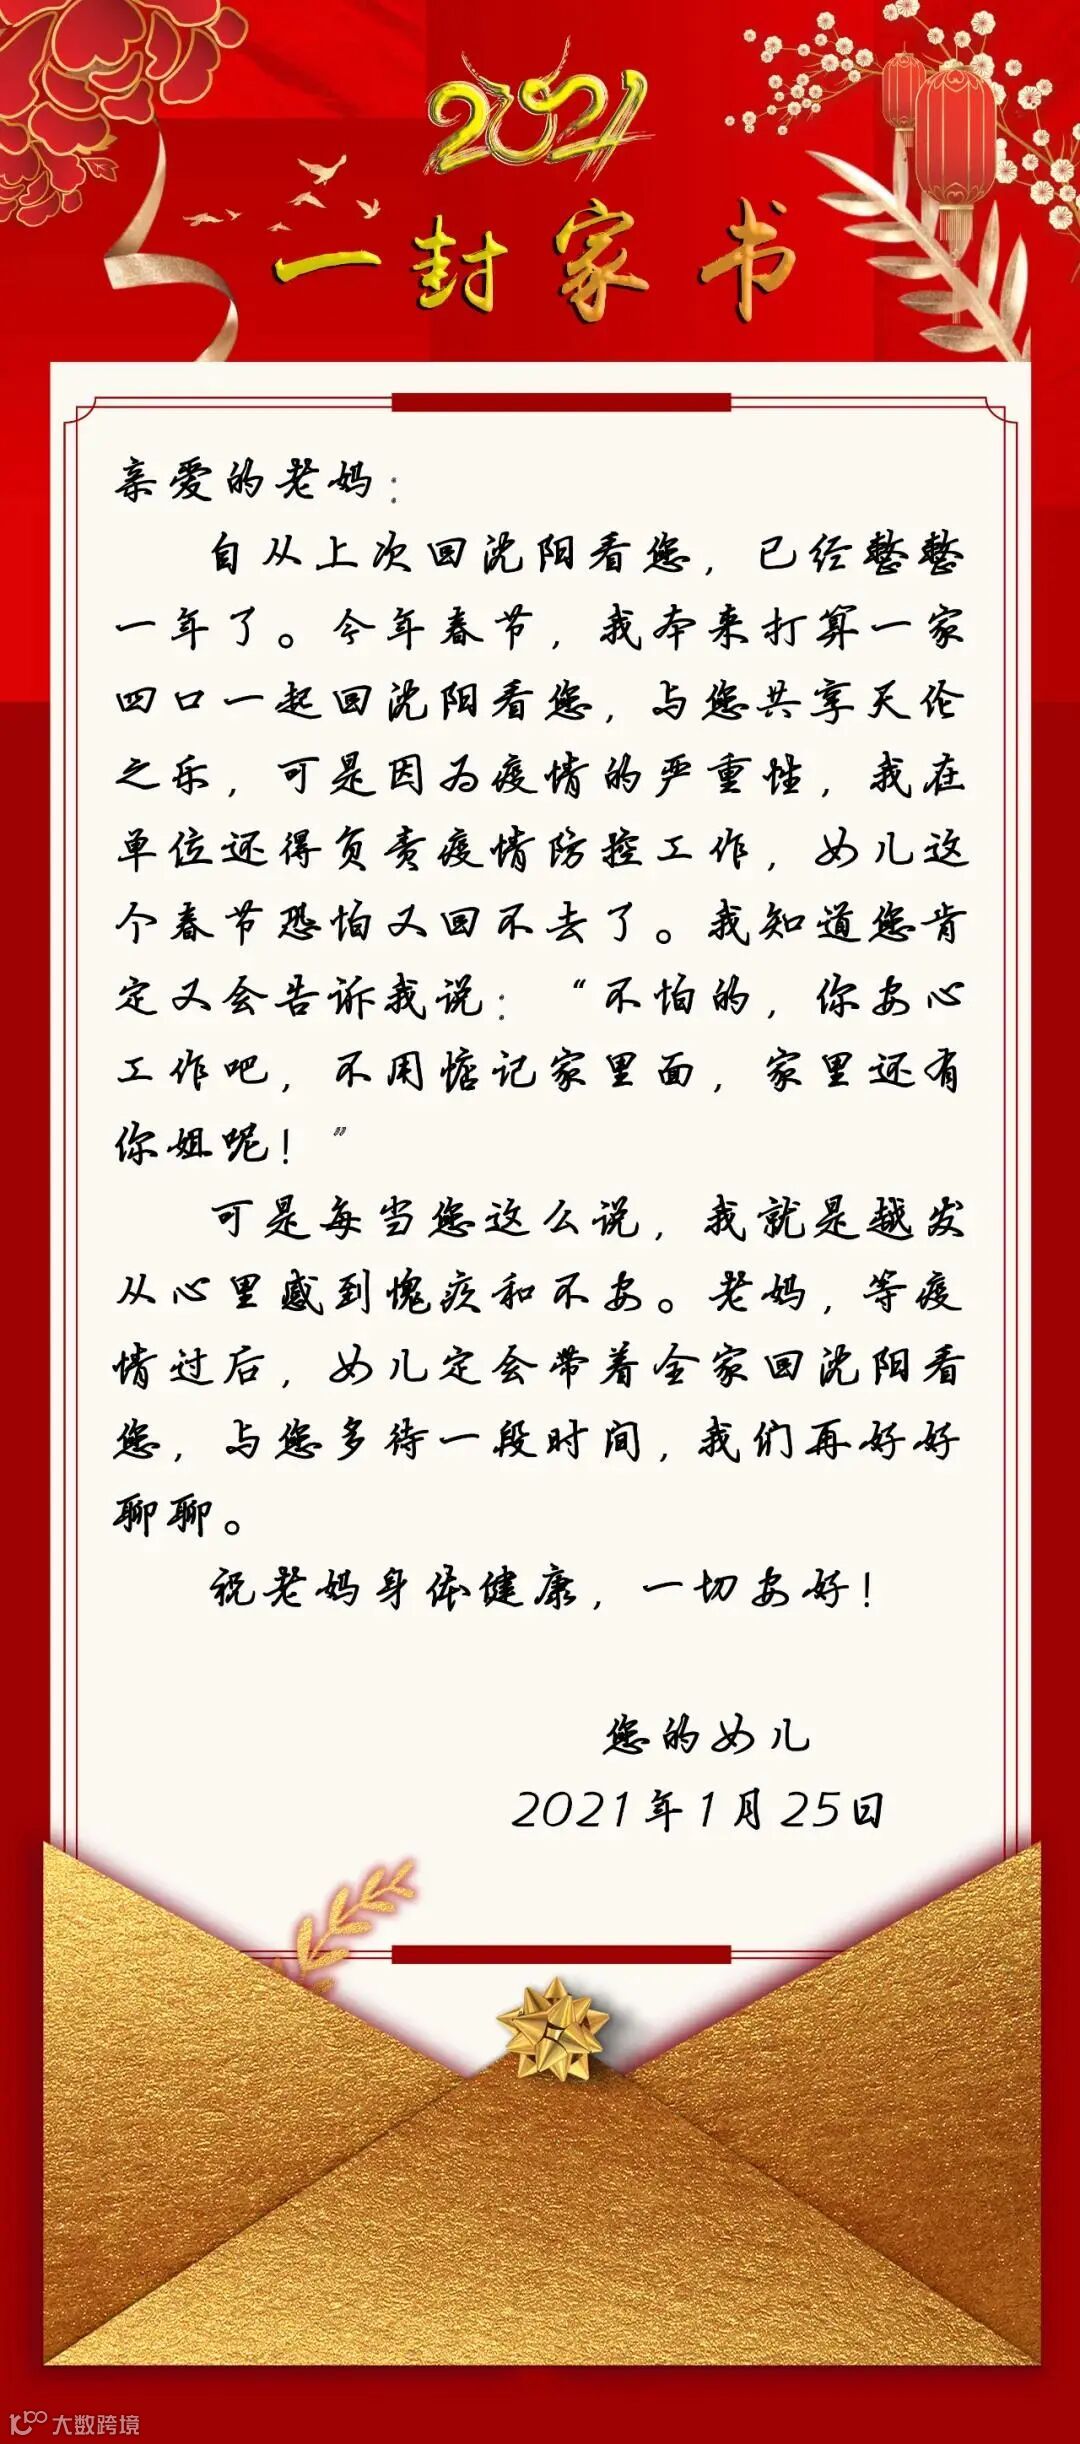 2021
一封家书
亲爱的老妈：
自从上次回沈阳看您，已经整整
一年了。今年春节，我本来打算一家
四口一起回沈阳看您，与您共享天伦
之乐，可是因为疫情的严重性，我在
单位还得负责疫情防控工作，女儿这
个春节恐怕又回不去了。我知道您肯
定又会告诉我说：“不怕的，你安心
工作吧，不用惦记家里面，家里还有
你姐呢！”
可是每当您这么说，我就是越发
从心里感到愧疚和不安。老妈，等疫
情过后，女儿定会带着全家回沈阳看
您，与您多待一段时间，我们再好好
聊聊。
祝老妈身体健康，一切安好！
您的女儿
2021年1月25日
大数跨境